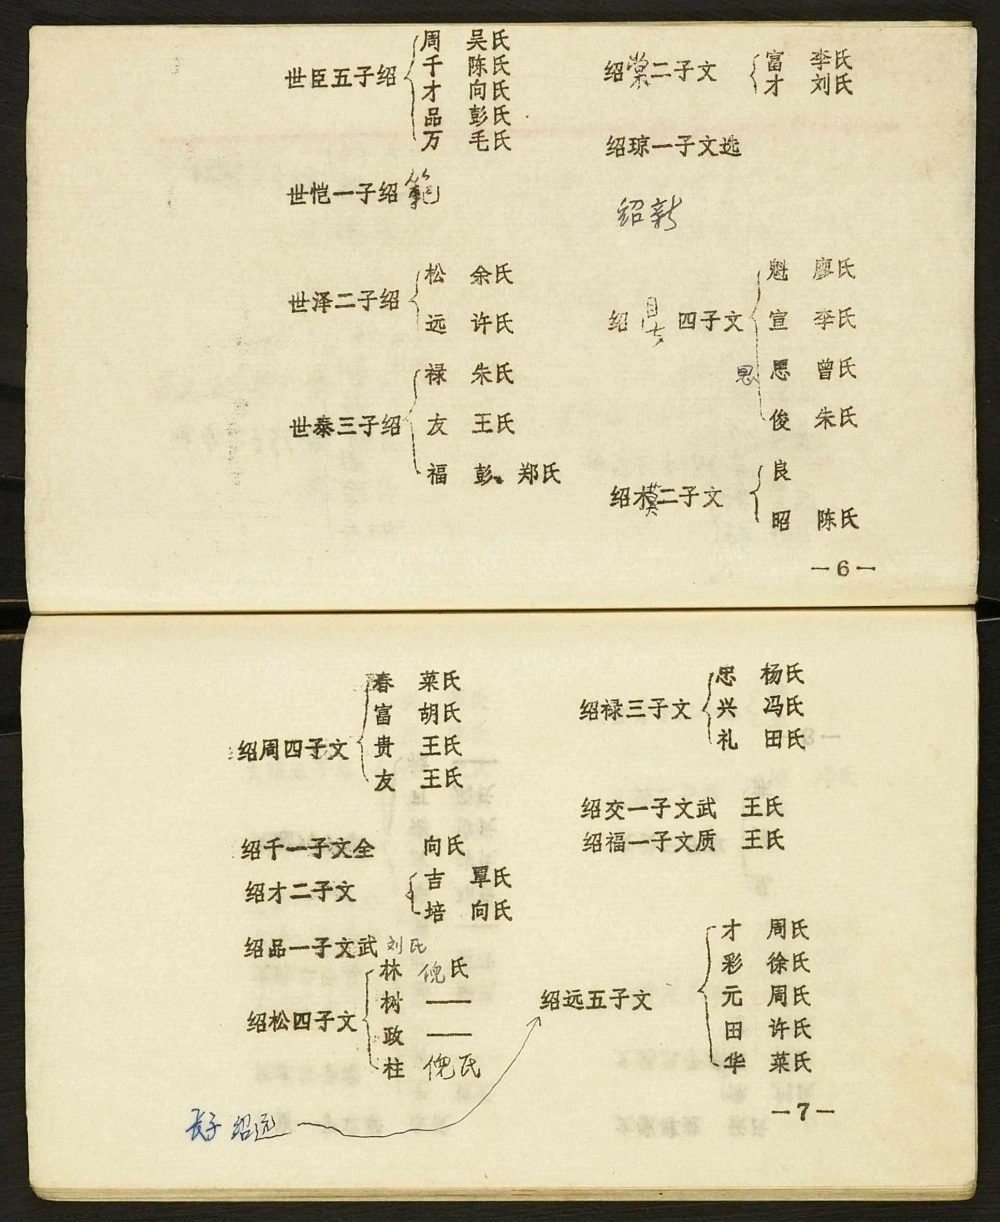 世臣五子绍
周 吴氏
千 陈氏
才 向氏
品 彭氏
万 毛氏
世恺一子绍範
世泽二子绍
松 余氏
远 许氏
世泰三子绍
禄 朱氏
友 王氏
福 彭、郑氏
绍棠二子文
富 李氏
才 刘氏
绍琼一子文选
绍新
绍 四子文
魁 廖氏
宣 李氏
思 思 曾氏
俊 朱氏
绍 二子文
良
昭 陈氏
—6—
绍周四子文
春 菜氏
富 胡氏
贵 王氏
友 王氏
绍千一子文全 向氏
绍才二子文
吉 覃氏
培 向氏
绍品一子文武 刘氏
绍松四子文
林 倪氏
树 ——
政 ——
柱 倪氏
长子 绍远
绍禄三子文
忠 杨氏
兴 冯氏
礼 田氏
绍交一子文武 王氏
绍福一子文质 王氏
绍远五子文
才 周氏
彩 徐氏
元 周氏
田 许氏
华 菜氏
—7—